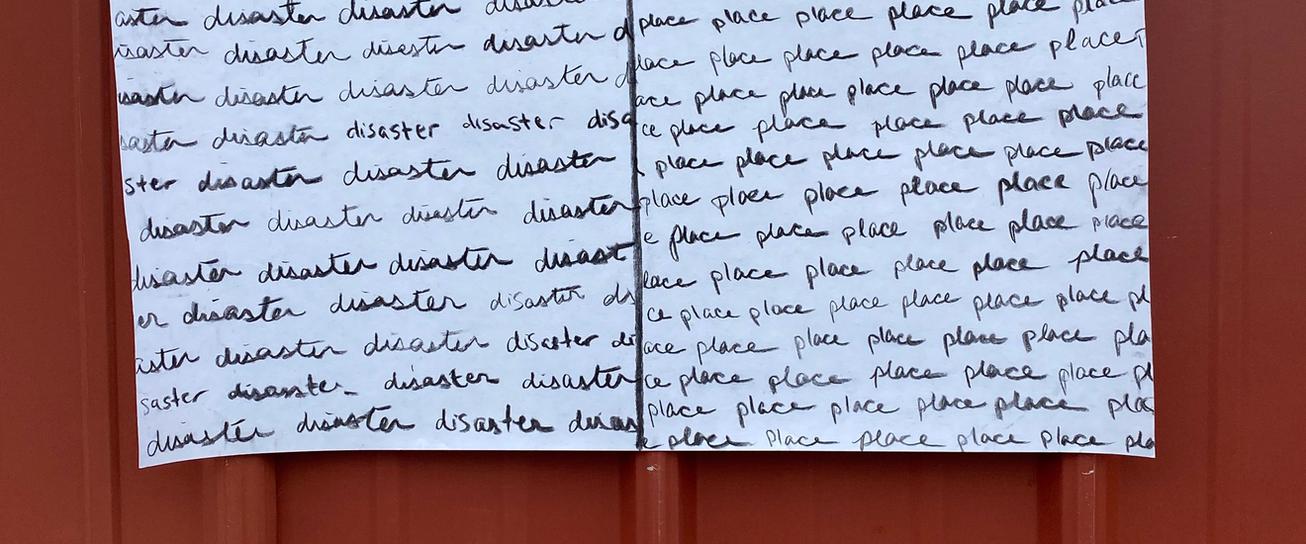 aster disaster disaster disaster
isaster disaster disaster disaster d
isaster disaster disaster disaster d
saster disaster disaster disaster disa
ster disaster disaster disaster
disaster disaster disaster disaster
disaster disaster disaster disast
er disaster disaster disaster dis
aster disaster disaster disaster di
saster disaste disaster disaster
disaster disaster disaster disas
place place place place place pla
lace place place place place place
ace place place place place place place
ce place place place place place
place place place place place place
place place place place place place
e place place place place place place
lace place place place place place
ce place place place place place place pl
ace place place place place pla
ce place place place place place pl
place place place place place plac
e place place place place place pla